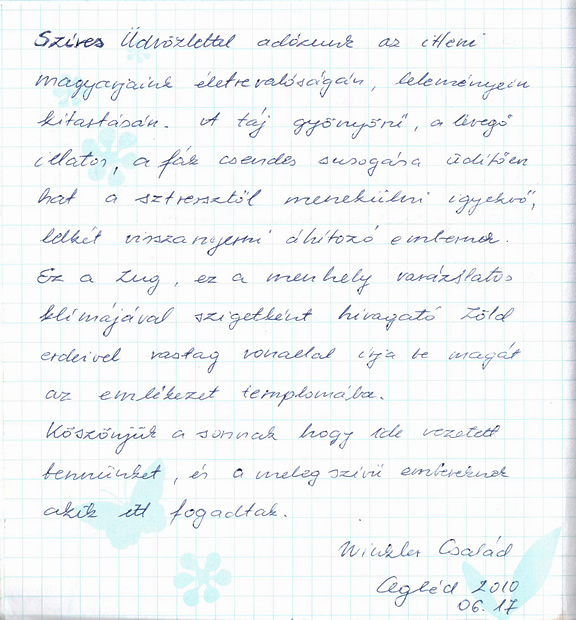 Szíves Üdvözlettel adózunk az itteni
magyarjaink életrevalóságán, leleményein
kitartásán. A táj gyönyörű, a levegő
illatos, a fák csendes susogása üdítően
hat a sztressztől menekülni igyekvő,
lelkét visszanyerni áhítozó embernek.
Ez a zug, ez a menhely varázslatos
klímájával szigetként hívogató Zöld
erdeivel vastag vonallal írja be magát
az emlékezet templomába.
Köszönjük a sorsnak hogy ide vezetett
bennünket, és a meleg szívű embereknek
akik itt fogadtak.
Winkler Család
Cegléd 2010
06.17